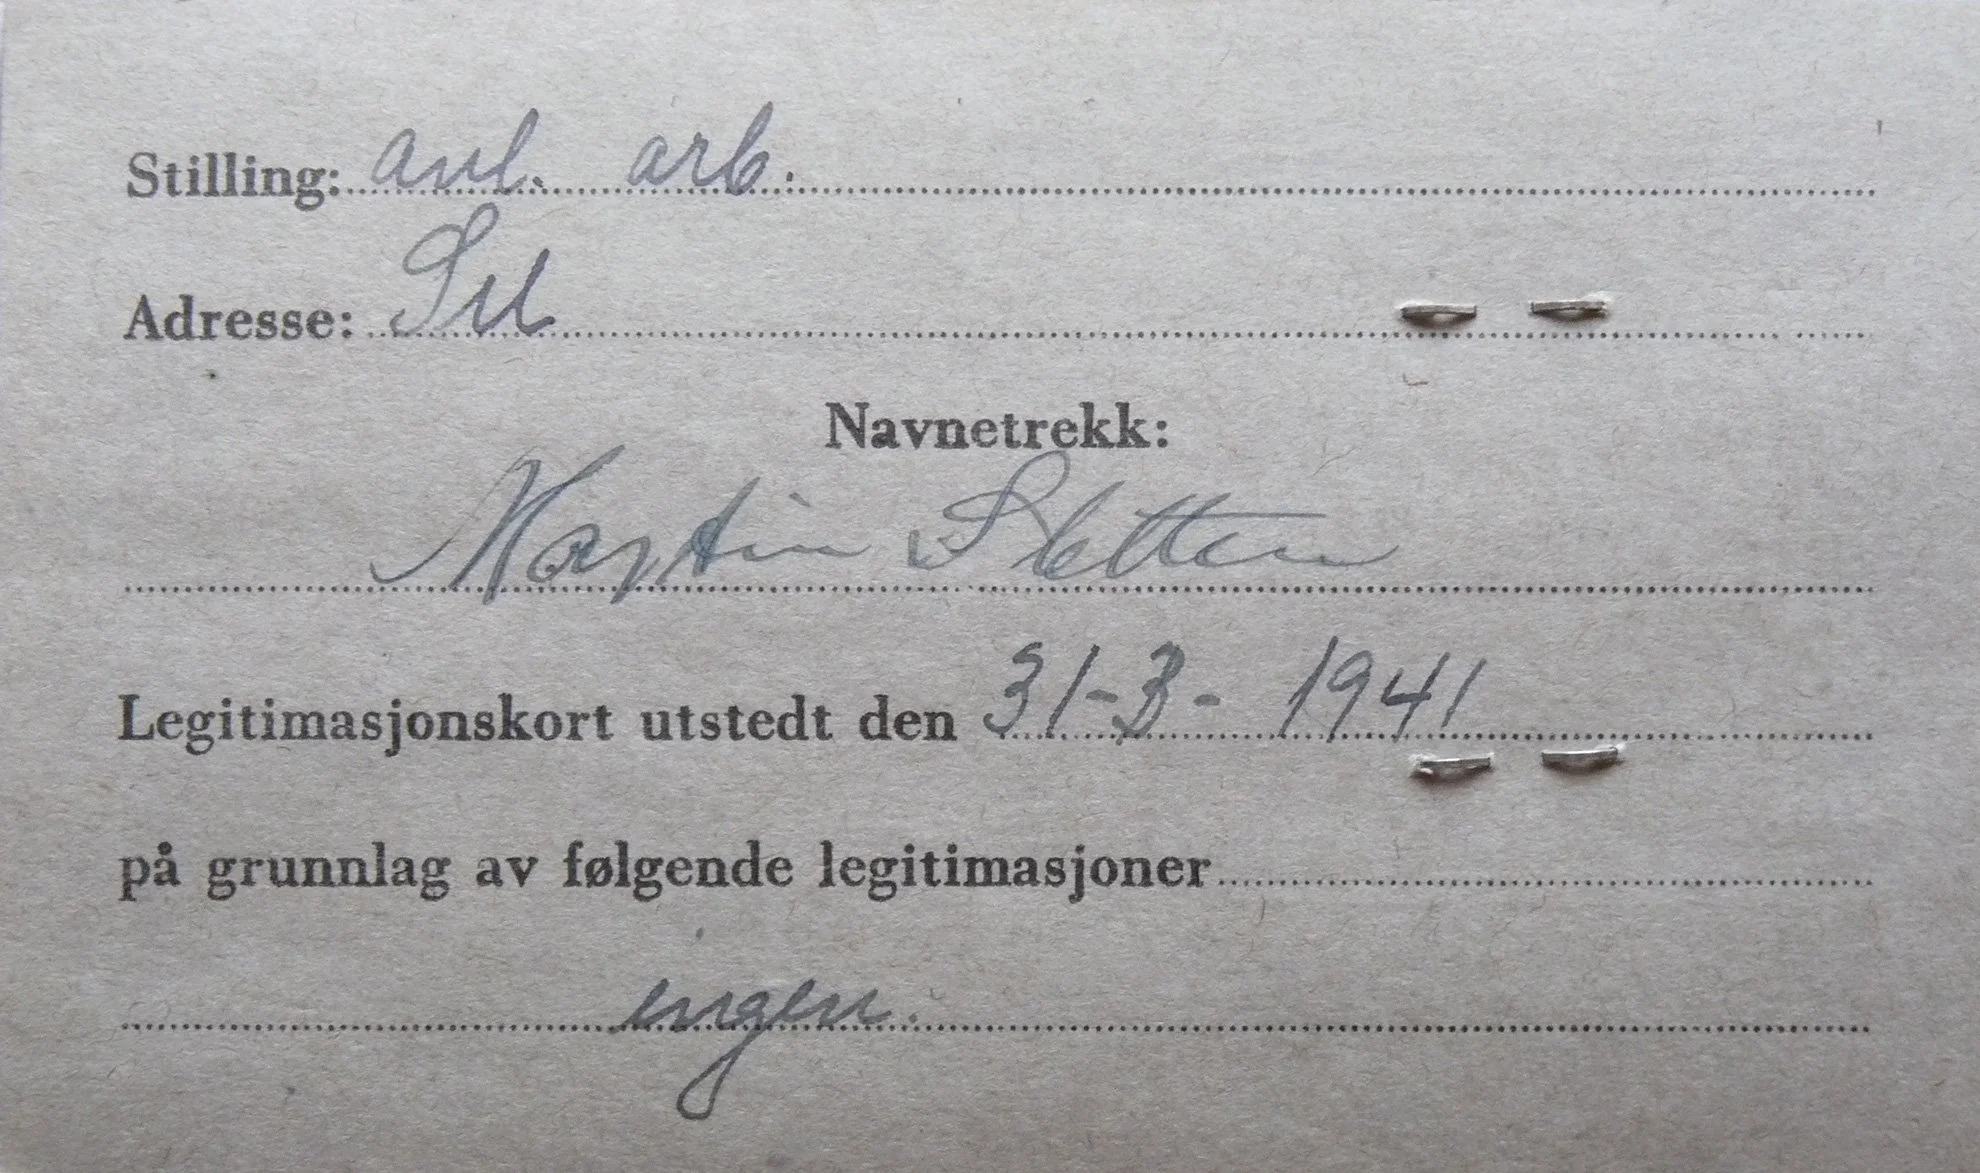 Stilling: anl. arb.
Adresse: Sel
Navnetrekk:
Martin Sletten
Legitimasjonskort utstedt den 31-3-1941
på grunnlag av følgende legitimasjoner
ingen.